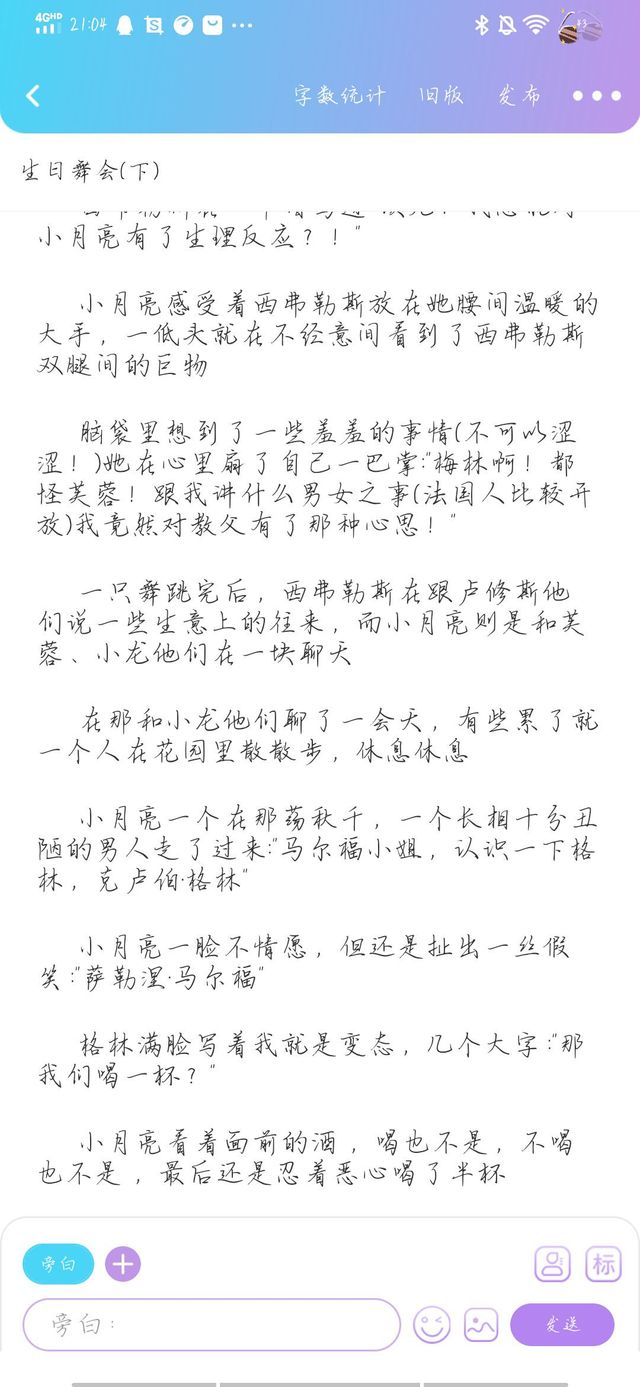 4G HD 21:04
43
字数统计 旧版 发布
生日舞会(下)
小月亮有了生理反应？！"
小月亮感受着西弗勒斯放在她腰间温暖的
大手，一低头就在不经意间看到了西弗勒斯
双腿间的巨物
脑袋里想到了一些羞羞的事情(不可以涩
涩！)她在心里扇了自己一巴掌:"梅林啊！都
怪芙蓉！跟我讲什么男女之事(法国人比较开
放)我竟然对教父有了那种心思！"
一只舞跳完后，西弗勒斯在跟卢修斯他
们说一些生意上的往来，而小月亮则是和芙
蓉、小龙他们在一块聊天
在那和小龙他们聊了一会天，有些累了就
一个人在花园里散散步，休息休息
小月亮一个在那荡秋千，一个长相十分丑
陋的男人走了过来:"马尔福小姐，认识一下格
林，克卢伯·格林"
小月亮一脸不情愿，但还是扯出一丝假
笑:"萨勒涅·马尔福"
格林满脸写着我就是变态，几个大字:"那
我们喝一杯？"
小月亮看着面前的酒，喝也不是，不喝
也不是，最后还是忍着恶心喝了半杯
旁白
标
旁白：
发送